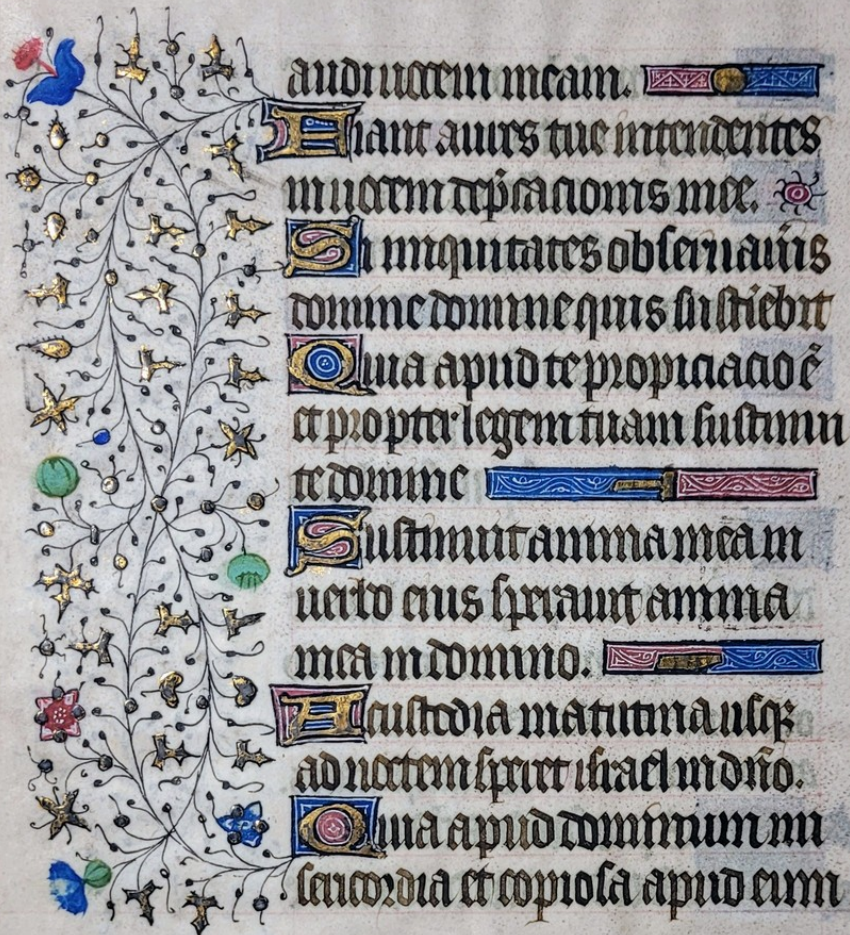 audi vocem meam.
Fiant aures tue intendentes
in vocem dep̄cacionis mee.
Si iniquitates observav̄is
domine domine quis sustiēbit
Quia apud te propiciacio ē
et propter legem tuam sustinui
te domine
Sustinuit anima mea in
verbo eius speravit anima
mea in domino.
A custodia matutina usqꝫ
ad noctem speret israel in dn̄o.
Quia apud dominum mi
sericordia et copiosa apud eum